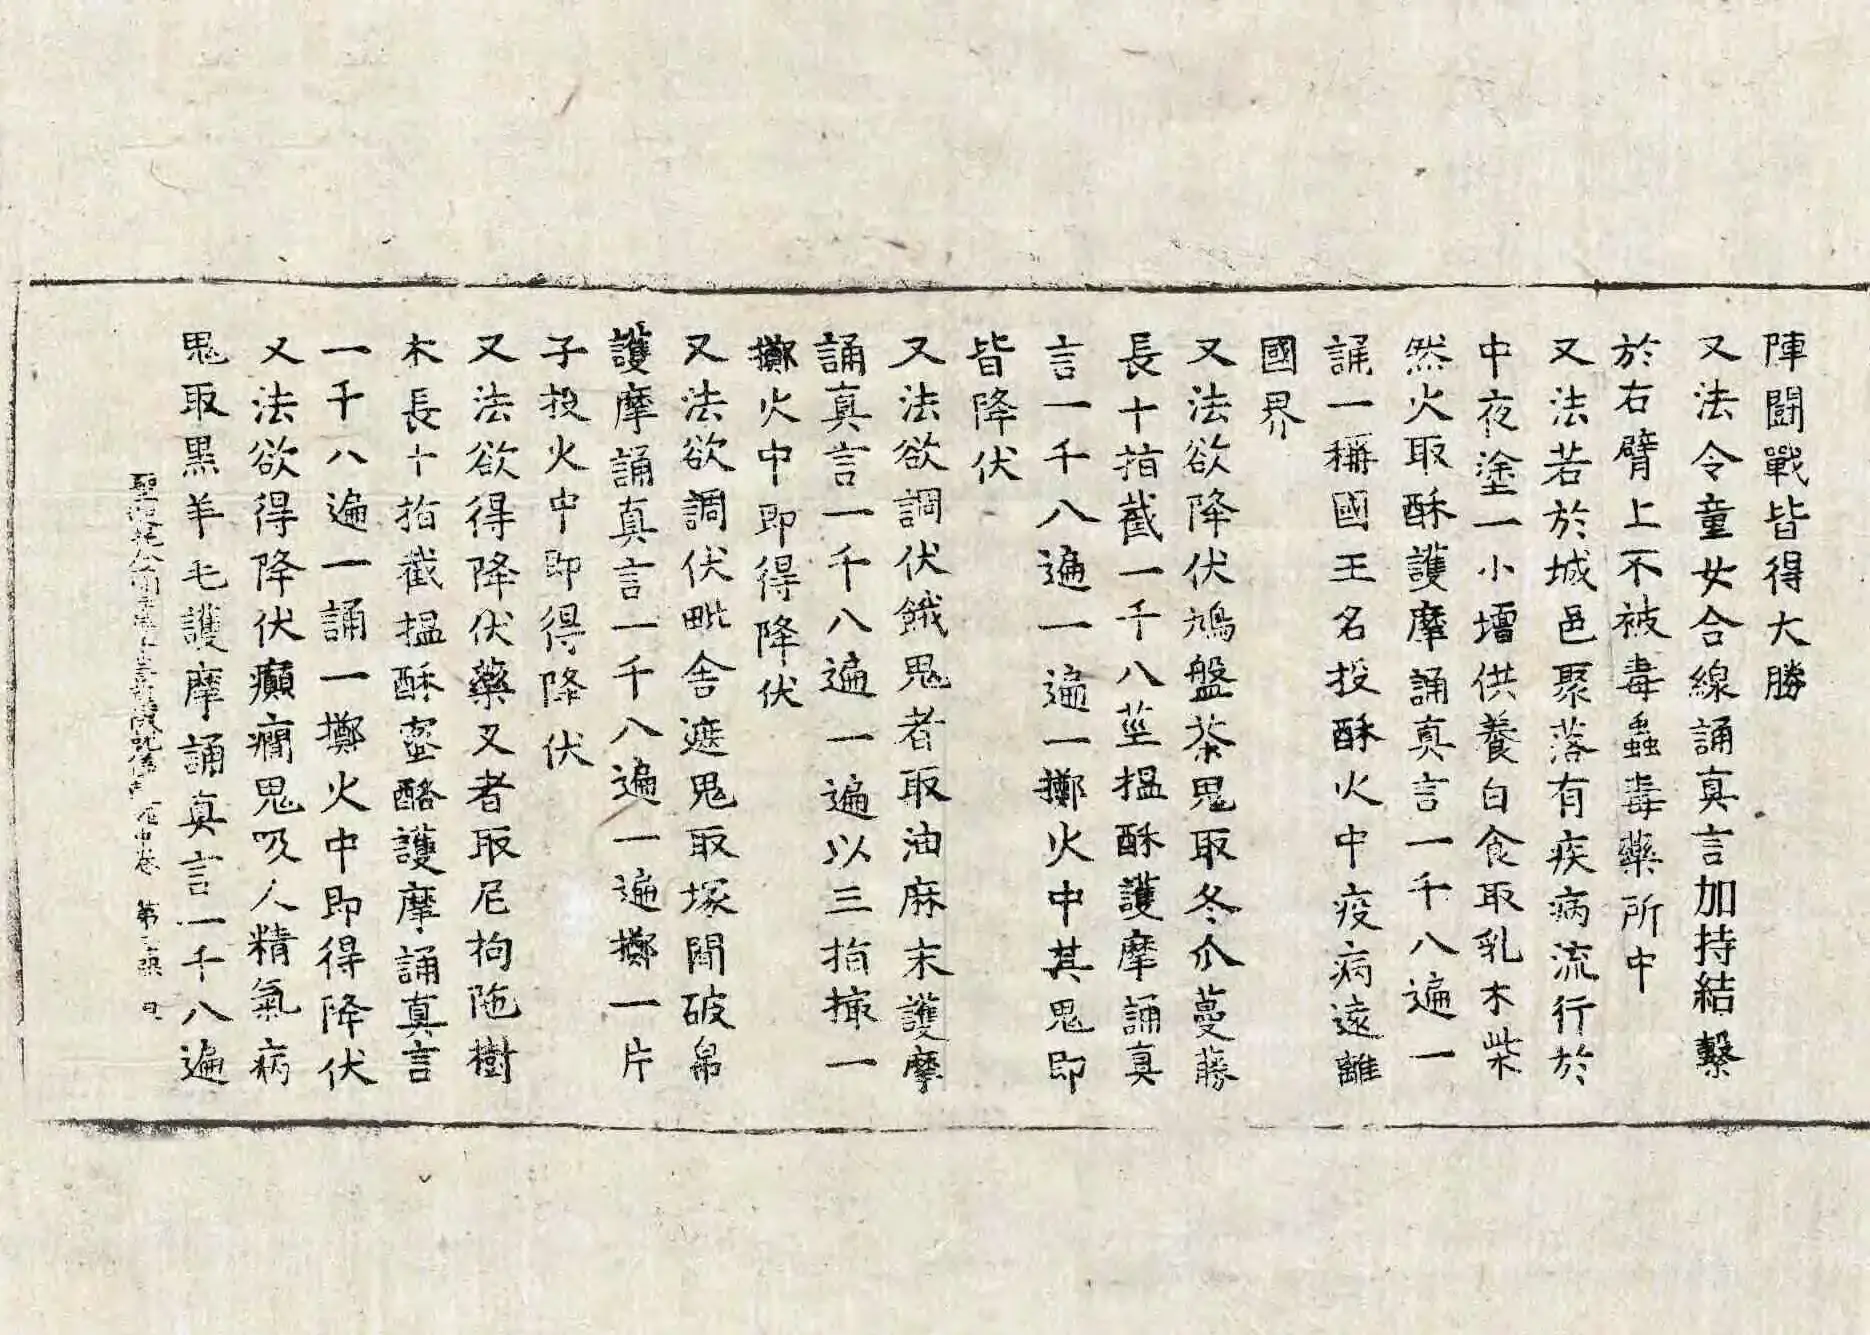 陣鬪戰皆得大勝
又法令童女合線誦真言加持結繫
於右臂上不被毒蟲毒藥所中
又法若於城邑聚落有疾病流行於
中夜塗一小壇供養白食取乳木柴
然火取酥護摩誦真言一千八遍一
誦一稱國王名投酥火中疫病遠離
國界
又法欲降伏鳩盤茶鬼取冬瓜蔓藤
長十指截一千八莖搵酥護摩誦真
言一千八遍一遍一擲火中其鬼即
皆降伏
又法欲調伏餓鬼者取油麻末護摩
誦真言一千八遍一遍以三指撮一
擲火中即得降伏
又法欲調伏毗舍遮鬼取塚間破帛
護摩誦真言一千八遍一遍擲一片
子投火中即得降伏
又法欲得降伏藥叉者取尼拘陁樹
木長十指截搵酥蜜酪護摩誦真言
一千八遍一誦一擲火中即得降伏
又法欲得降伏癲癇鬼吸人精氣病
鬼取黑羊毛護摩誦真言一千八遍
中卷 第 張